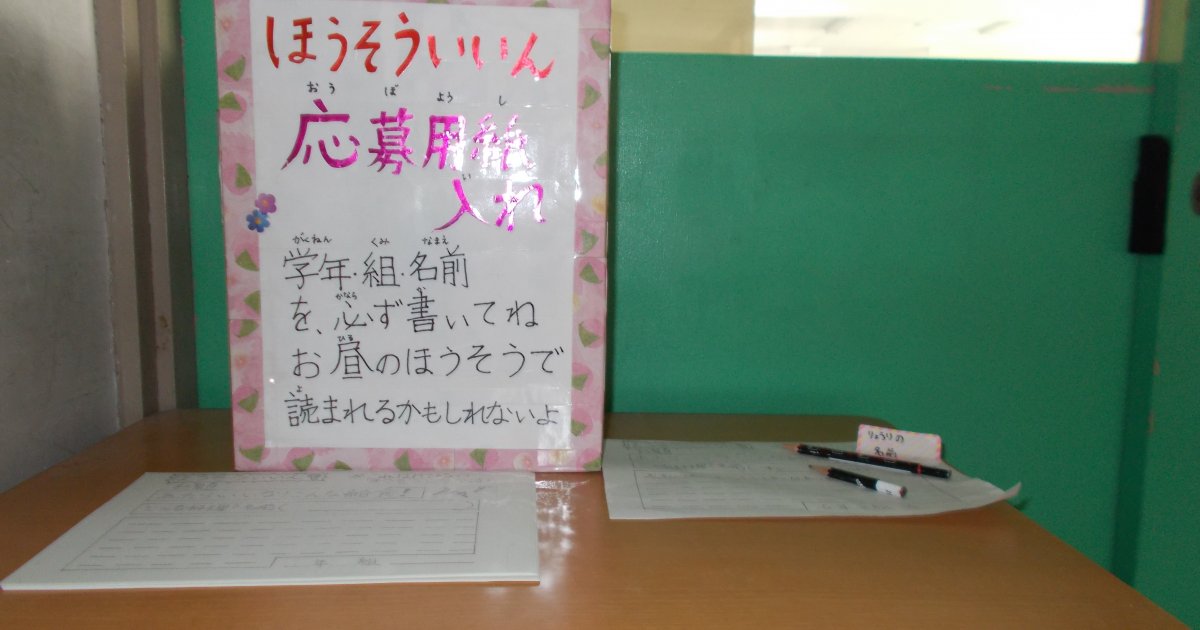 ほうそういいん
おうぼようし
応募用紙
い
入れ
がくねん くみ なまえ
学年・組・名前
かなら か
を、必ず書いてね
ひる
お昼のほうそうで
よ
読まれるかもしれないよ
りょうりの
名前
年 組